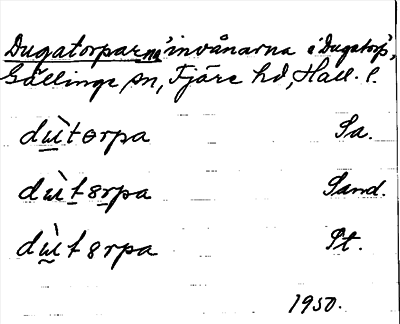 Dugatorparna 'invånarna i Dugatorp',
Gällinge sn, Fjäre hd, Hall. l.
dùtɵrpa Sa.
dùtɵrpa Sand.
dùtɵrpa St.
1950.